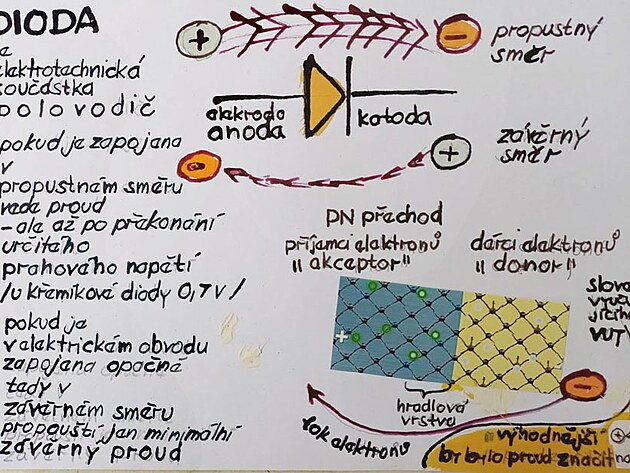 DIODA
je
elektrotechnická
součástka
polovodič
pokud je zapojena
v
propustném směru
vede proud
- ale až po překonání
určitého
prahového napětí
/u křemíkové diody 0,7 V /
pokud je
v elektrickém obvodu
zapojena opačně
tedy v
závěrném směru
propouští jen minimální
závěrný proud
+
-
propustný
směr
elektroda
anoda
katoda
-
+
závěrný
směr
PN přechod
příjemci elektronů
"akceptor"
dárci elektronů
"donor"
+
-
hradlová
vrstva
tok elektronů
výhodnější
by bylo proud značit
+